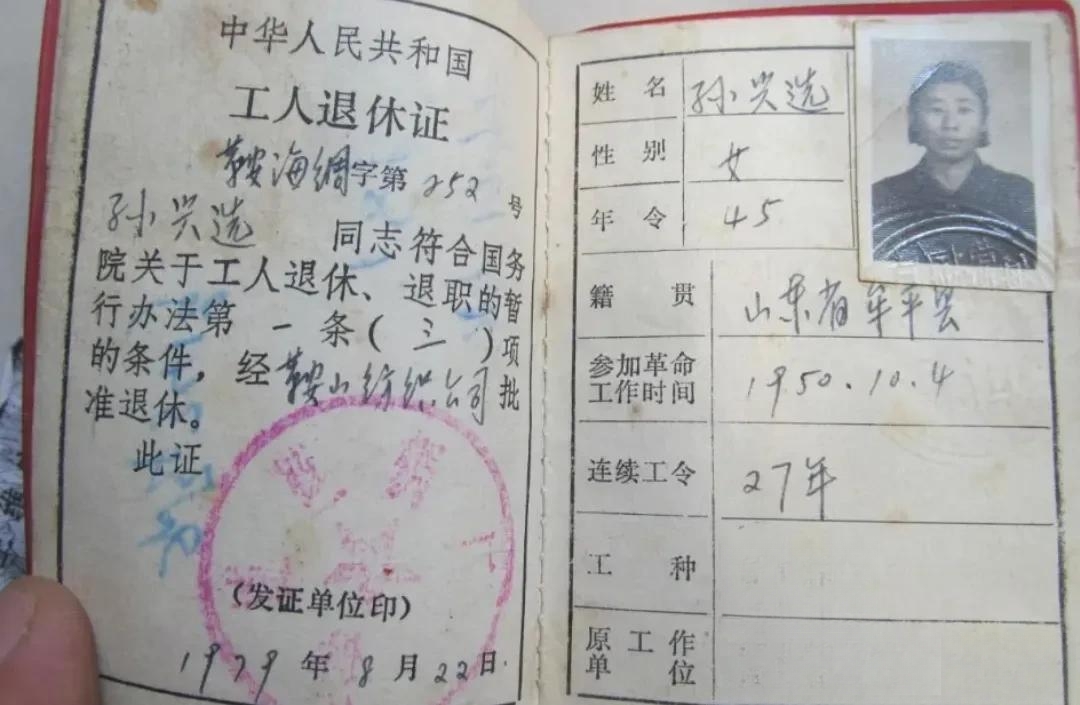 中华人民共和国
工人退休证
鞍海绸字第252号
孙兴选 同志符合国务
院关于工人退休、退职的暂
行办法第一条(三)项
的条件，经鞍山纺织公司批
准退休。
此证
(发证单位印)
1979年8月22日.
姓名 孙兴选
性别 女
年令 45
籍贯 山东省牟平县
参加革命
工作时间 1950.10.4
连续工令 27年
工种
原工作
单位